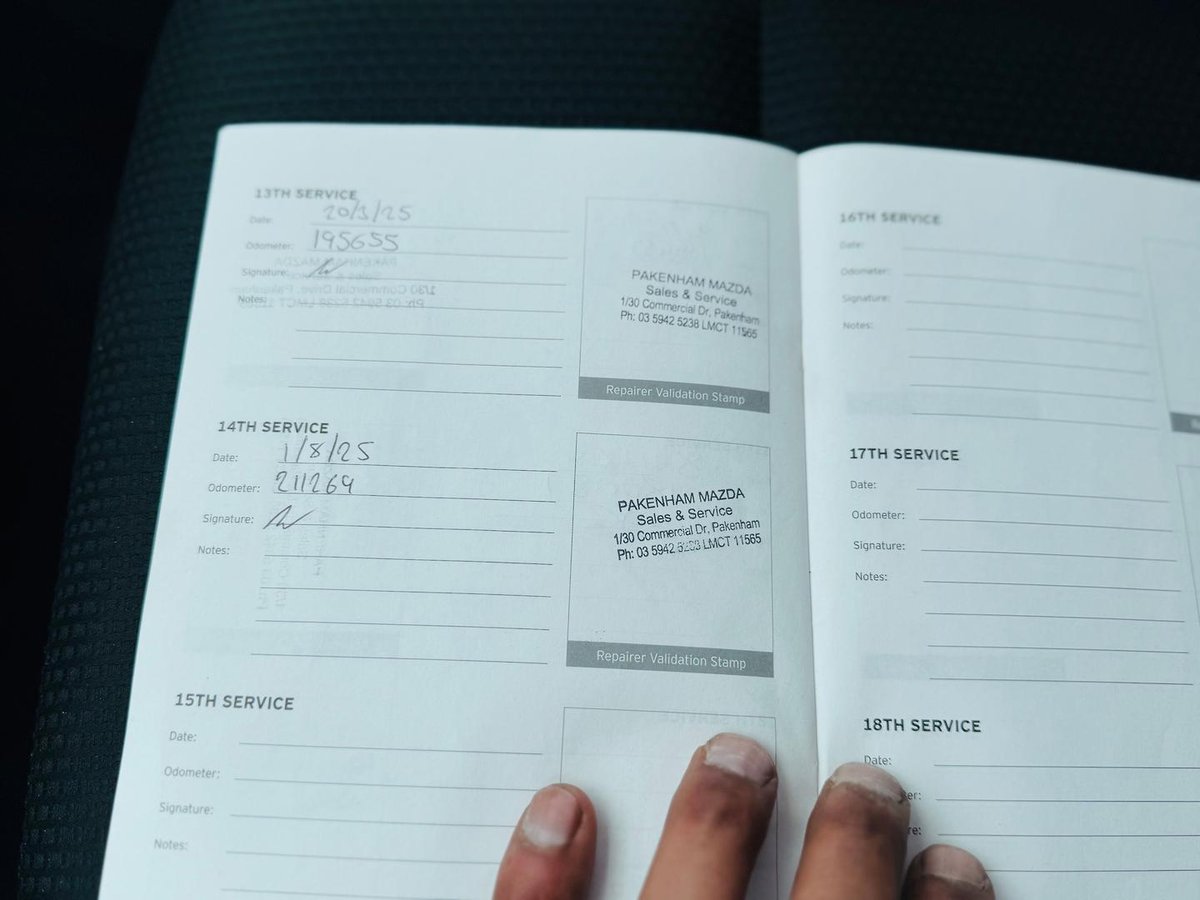 13TH SERVICE
Date: 20/3/25
Odometer: 195655
Signature:
Notes:
PAKENHAM MAZDA
Sales & Service
1/30 Commercial Dr, Pakenham
Ph: 03 5942 5238 LMCT 11565
Repairer Validation Stamp
14TH SERVICE
Date: 1/8/25
Odometer: 211264
Signature:
Notes:
PAKENHAM MAZDA
Sales & Service
1/30 Commercial Dr, Pakenham
Ph: 03 5942 LMCT 11565
Repairer Validation Stamp
15TH SERVICE
Date:
Odometer:
Signature:
Notes:
16TH SERVICE
Date:
Odometer:
Signature:
Notes:
17TH SERVICE
Date:
Odometer:
Signature:
Notes:
18TH SERVICE
Date: